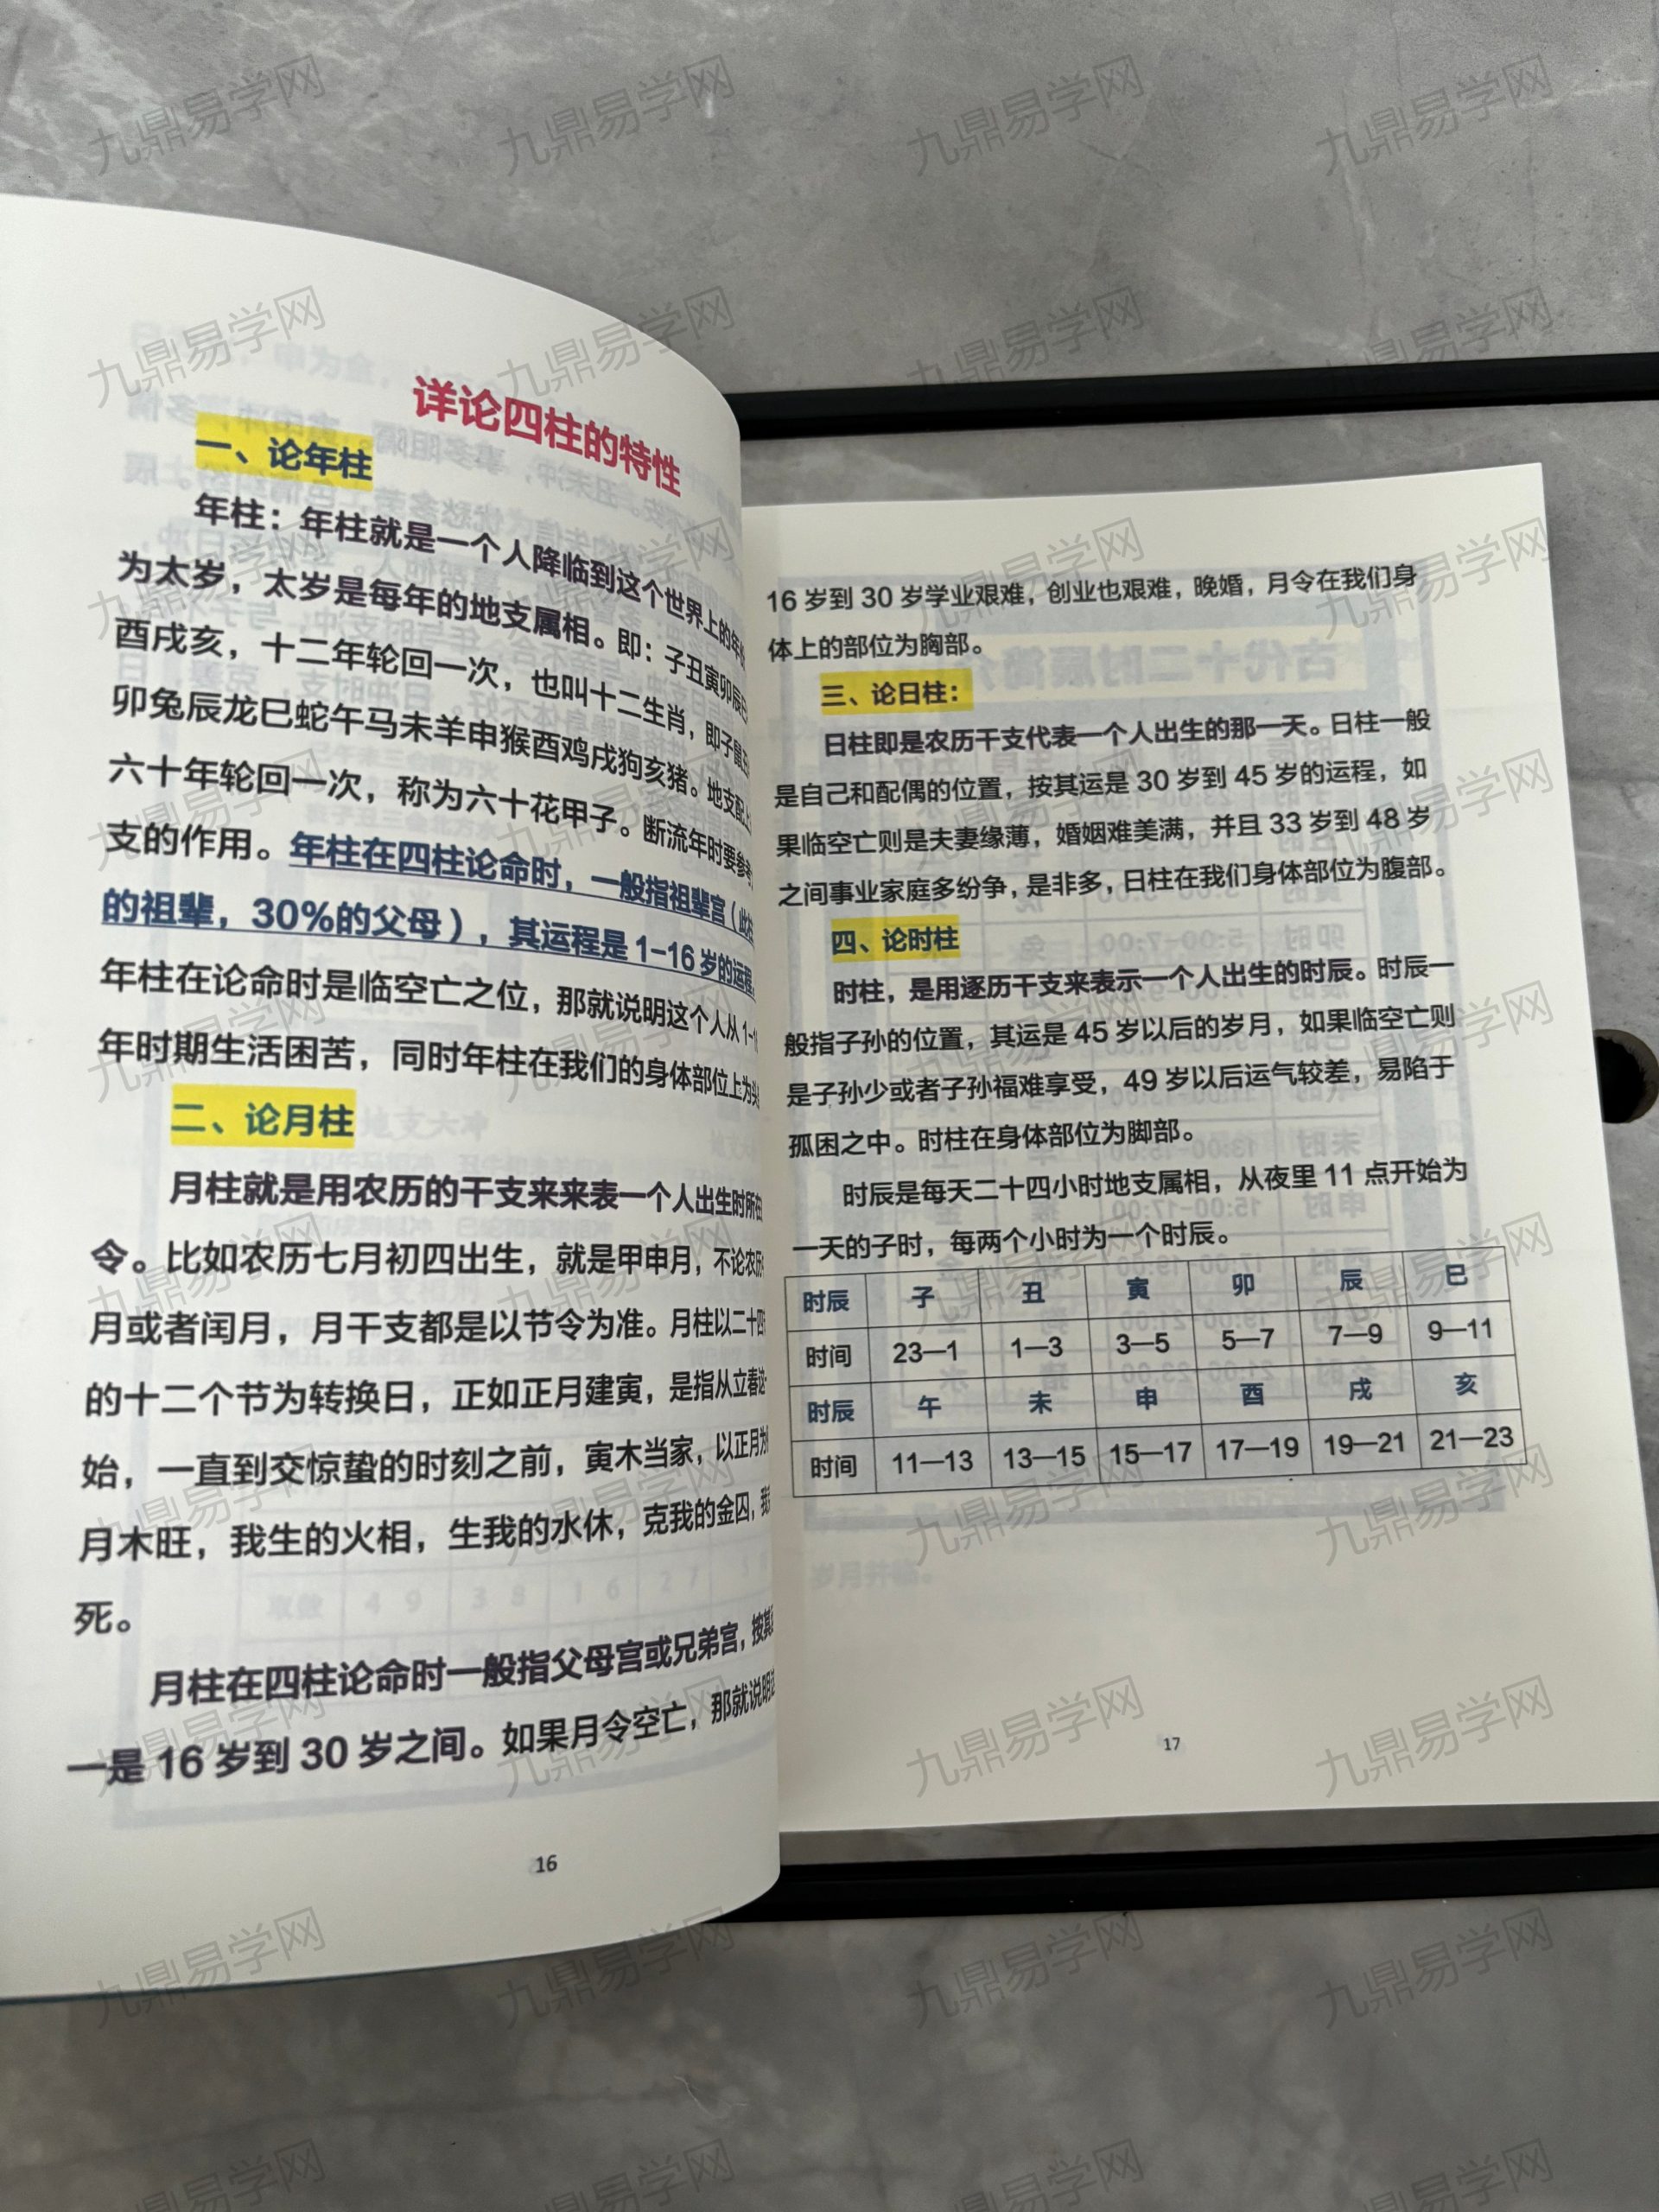 详论四柱的特性
一、论年柱
年柱：年柱就是一个人降临到这个世界上的年
为太岁，太岁是每年的地支属相。即：子丑寅卯辰巳
酉戌亥，十二年轮回一次，也叫十二生肖，即子鼠丑
卯兔辰龙巳蛇午马未羊申猴酉鸡戌狗亥猪。地支配上
六十年轮回一次，称为六十花甲子。断流年时要参考
支的作用。年柱在四柱论命时，一般指祖辈宫（此柱
的祖辈，30%的父母），其运程是1-16岁的运程
年柱在论命时是临空亡之位，那就说明这个人从1-1
年时期生活困苦，同时年柱在我们的身体部位上为头
二、论月柱
月柱就是用农历的干支来来表一个人出生时所在
令。比如农历七月初四出生，就是甲申月，不论农历
月或者闰月，月干支都是以节令为准。月柱以二十四
的十二个节为转换日，正如正月建寅，是指从立春这
始，一直到交惊蛰的时刻之前，寅木当家，以正月为
月木旺，我生的火相，生我的水休，克我的金囚，我
死。
月柱在四柱论命时一般指父母宫或兄弟宫，按其
一是16岁到30岁之间。如果月令空亡，那就说明这
16
16岁到30岁学业艰难，创业也艰难，晚婚，月令在我们身
体上的部位为胸部。
三、论日柱：
日柱即是农历干支代表一个人出生的那一天。日柱一般
是自己和配偶的位置，按其运是30岁到45岁的运程，如
果临空亡则是夫妻缘薄，婚姻难美满，并且33岁到48岁
之间事业家庭多纷争，是非多，日柱在我们身体部位为腹部。
四、论时柱
时柱，是用逐历干支来表示一个人出生的时辰。时辰一
般指子孙的位置，其运是45岁以后的岁月，如果临空亡则
是子孙少或者子孙福难享受，49岁以后运气较差，易陷于
孤困之中。时柱在身体部位为脚部。
时辰是每天二十四小时地支属相，从夜里11点开始为
一天的子时，每两个小时为一个时辰。
时辰 子 丑 寅 卯 辰 巳
时间 23—1 1—3 3—5 5—7 7—9 9—11
时辰 午 未 申 酉 戌 亥
时间 11—13 13—15 15—17 17—19 19—21 21—23
17
九鼎易学网